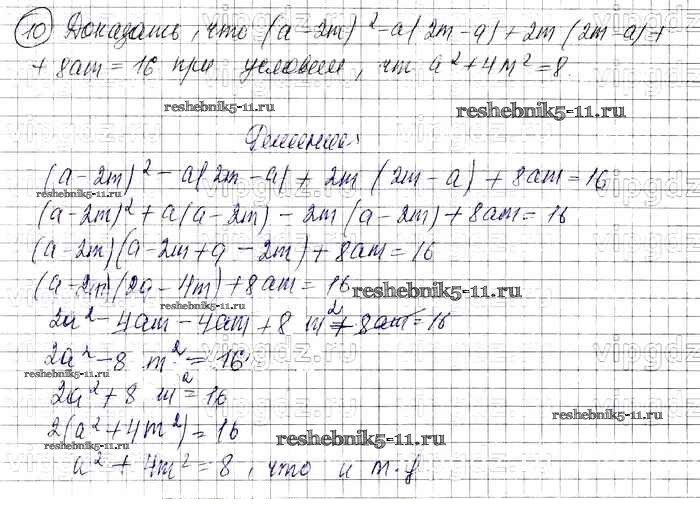 10 Доказать, что (a-2m)²-a(2m-a)+2m(2m-a)+
+8am=16 при условии, чт a²+4m²=8.
resheebnik5-11.ru
resheebnik5-11.ru
Решение:
(a-2m)²-a(2m-a)+2m(2m-a)+8am=16
reshebnik5-11.ru
(a-2m)²+a(a-2m)-2m(a-2m)+8am=16
(a-2m)(a-2m+a-2m)+8am=16
(a-2m)(2a-4m)+8am=16
reshebnik5-11.ru
reshebnik5-11.ru
2a²-4am-4am+8m²+8am=16
2a²-8m²=16
reshebnik5-11.ru
2a²+8m²=16
reshebnik5-11.ru
2(a²+4m²)=16
reshebnik5-11.ru
a²+4m²=8, что и т.д
vipgdz.ru
vipgdz.ru
vipgdz.ru
vipgdz.ru